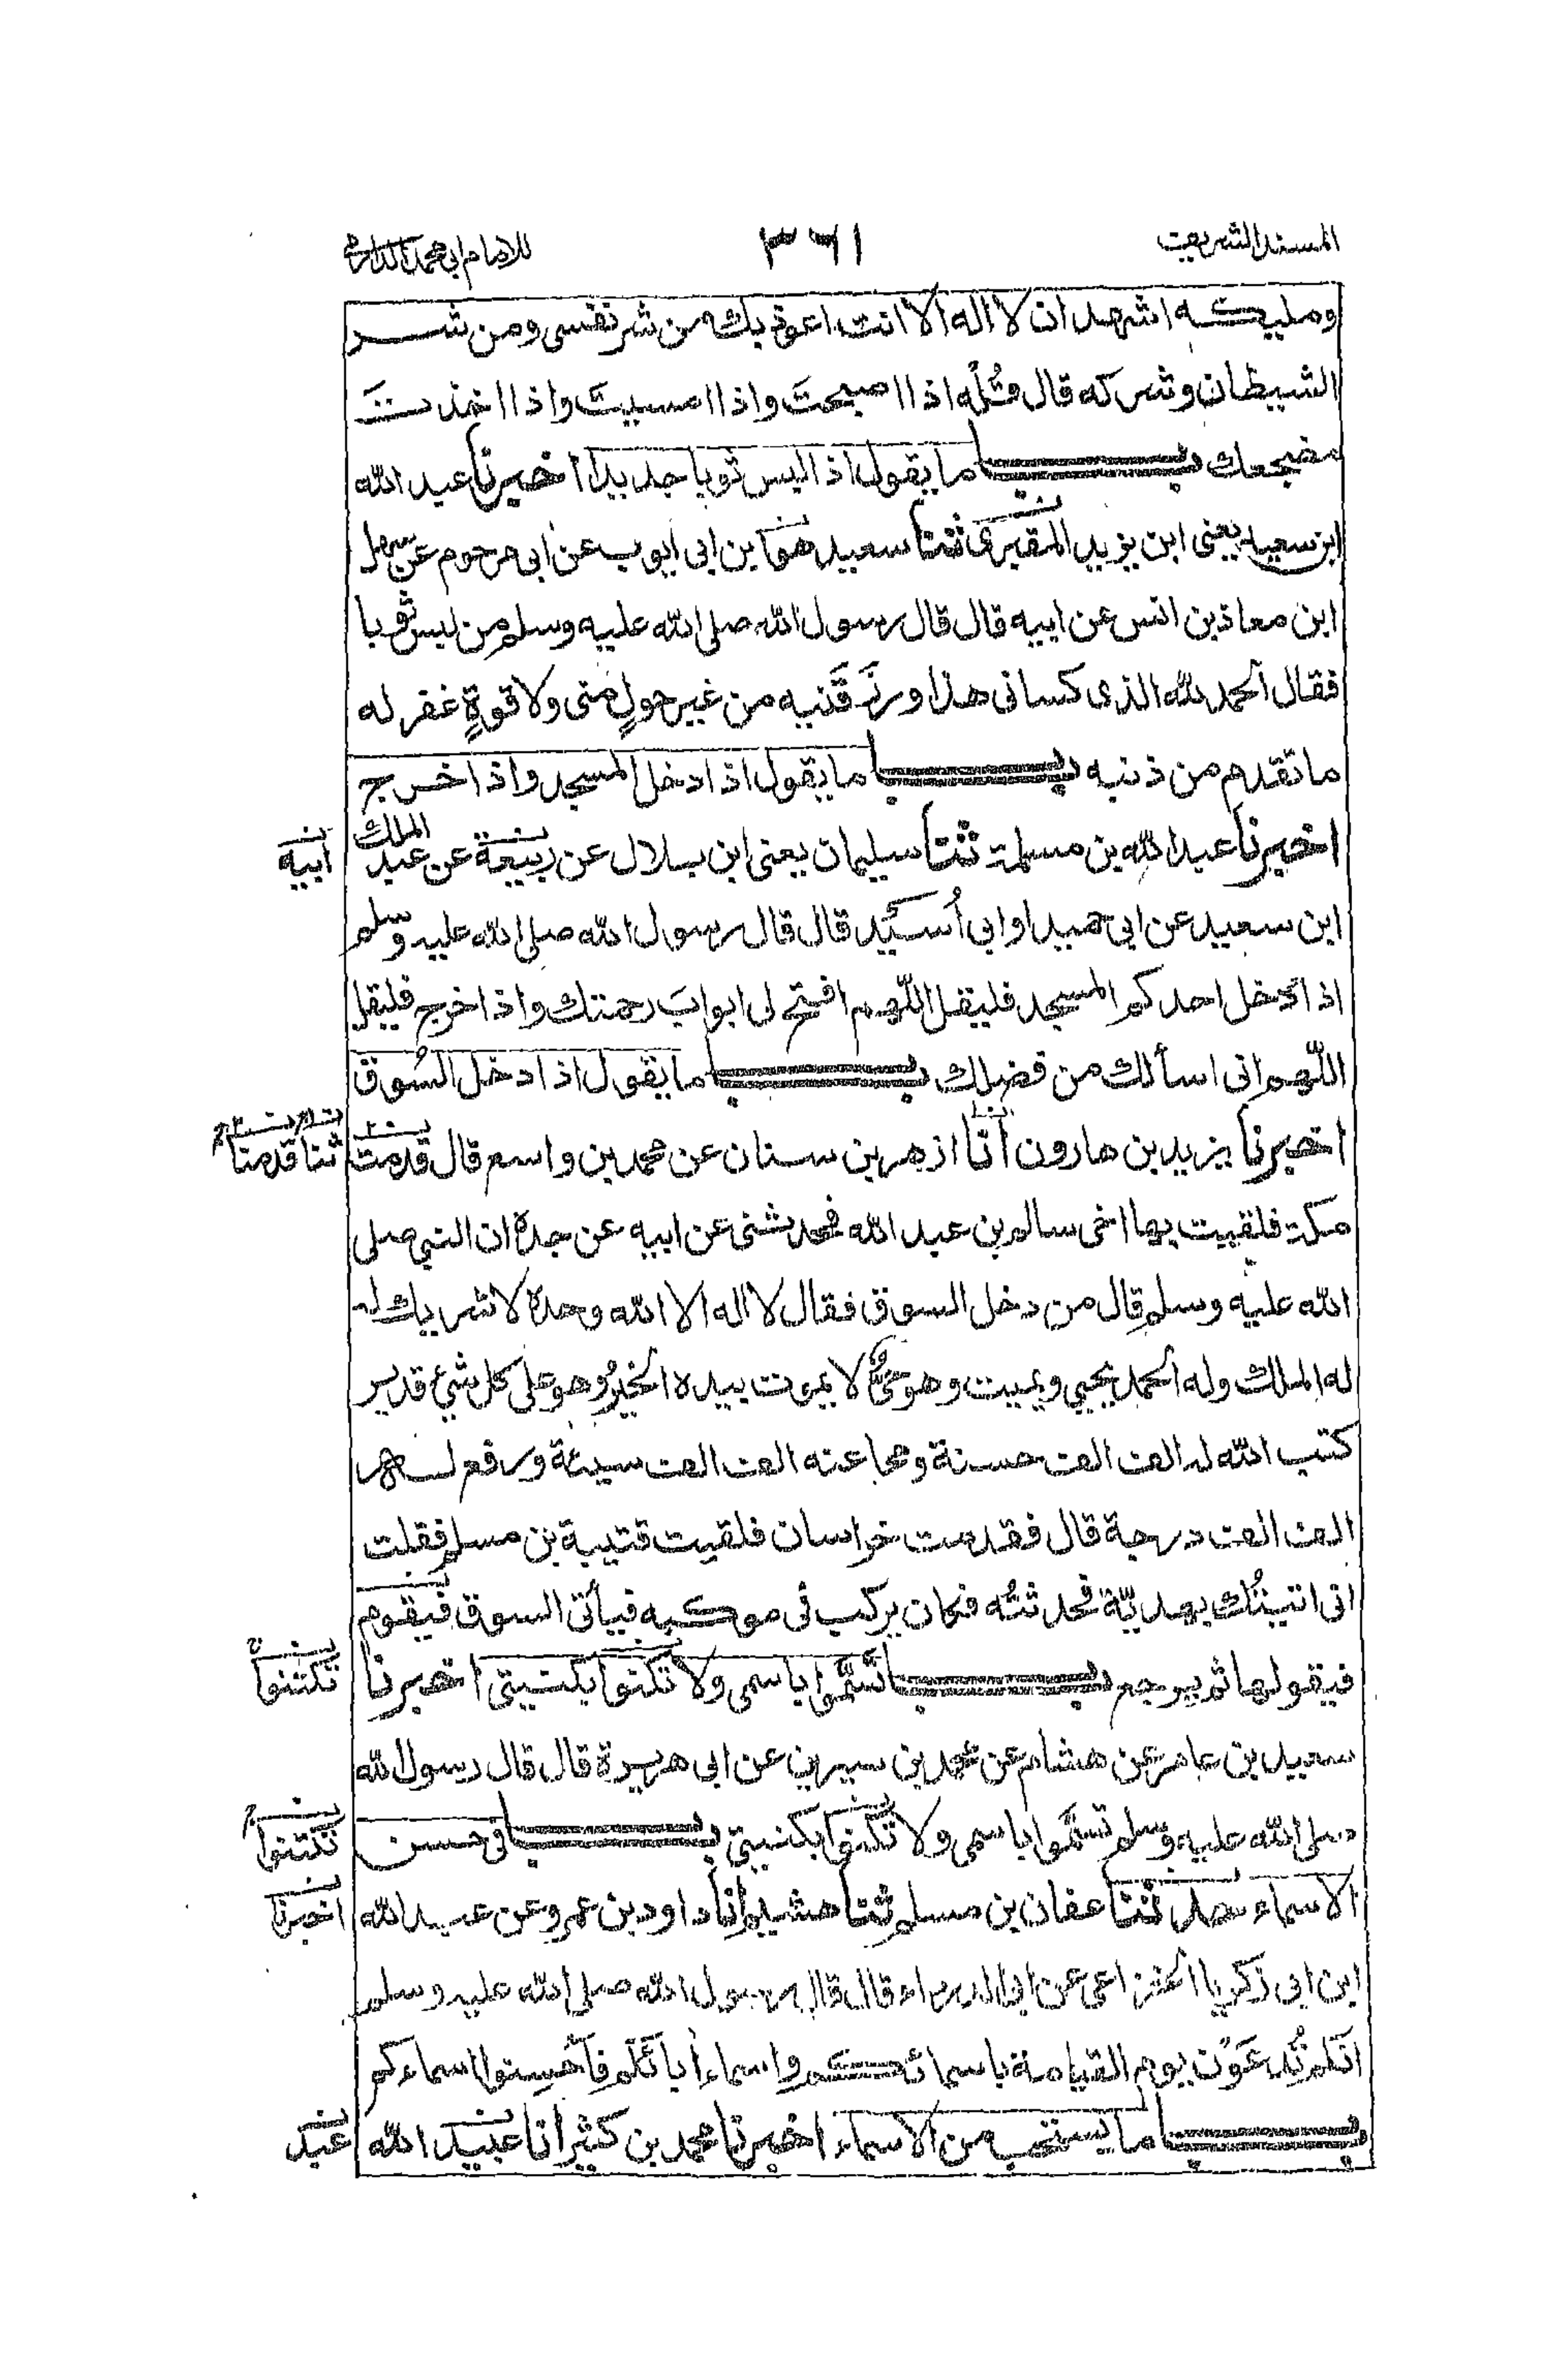 المسند الشريف
٣٦١
للامام ابى محمد الدارمى
ومليكه اشهد ان لا اله الا انت اعوذ بك من شر نفسى ومن شر
الشيطان وشركه قال قُلْه اذا اصبحتَ واذا امسيتَ واذا اخذتَ
مضجعك باب ما يقول اذا لبس ثوبا جديدا اخبرنا عبد الله
ابن سعيد يعنى ابن يزيد المقبرى ثنا سعيد هو ابن ابى ايوب عن ابى مرحوم عن سهل
ابن معاذ بن انس عن ابيه قال قال رسول الله صلى الله عليه وسلم من لبس ثوبا
فقال الحمد لله الذى كسانى هذا ورزَقَنيه من غير حولٍ منى ولا قوةٍ غفر له
ما تقدم من ذنبه باب ما يقول اذا دخل المسجد واذا اخرج
اخبرنا عبد الله بن مسلمة ثنا سليمان يعنى ابن بلال عن ربيعة عن عبد الملك
ابيه
ابن سعيد عن ابى حميد او ابى أُسَيْد قال قال رسول الله صلى الله عليه وسلم
اذا دخل احدكم المسجد فليقل اللّهم افتح لى ابوابَ رحمتك واذا خرج فليقل
اللّهم انى اسألك من فضلك باب ما يقول اذا دخل السُوق
اخبرنا يزيد بن هارون أنا ازهر بن سنان عن محمد بن واسع قال قدمت
ثنا قدمنا
مكة فلقيت بها اخى سالم بن عبد الله فحدثنى عن ابيه عن جده ان النبى صلى
الله عليه وسلم قال من دخل السوق فقال لا اله الا الله وحده لا شريك له
له الملك وله الحمد يحيى ويميت وهو حىٌّ لا يموت بيده الخيرُ وهو على كل شئ قدير
كتب الله له الف الف حسنة ومحا عنه الف الف سيئة ورفع له
الف الف درجة قال فقدمت خراسان فلقيت قتيبة بن مسلم فقلت
انى اتيتُك بهديّة فحدثتُه فكان يركب فى موكبه فيأتى السوق فيقوم
فيقولها ثم يرجع باب تَسَمَّوا باسمى ولا تكنوا بكنيتى اخبرنا
تكتنوا
سعيد بن عامر عن هشام عن محمد بن سيرين عن ابى هريرة قال قال رسول الله
صلى الله عليه وسلم تسَمَّوا باسمى ولا تَكَنَّوا بكنيتى باب فى حسن
تكتنوا
الاسماء حدثنا عفان بن مسلم ثنا هشيم أنا داود بن عمرو عن عبد الله
اخبرنا
ابن ابى زكريا الخزاعى عن ابى الدرداء قال قال رسول الله صلى الله عليه وسلم
انكم تُدعَوْن يوم القيامة باسمائكم واسماء أبائكم فأحْسِنوا اسماءكم
باب ما يستحب من الاسماء اخبرنا محمد بن كثير أنا عبيد الله
عبد